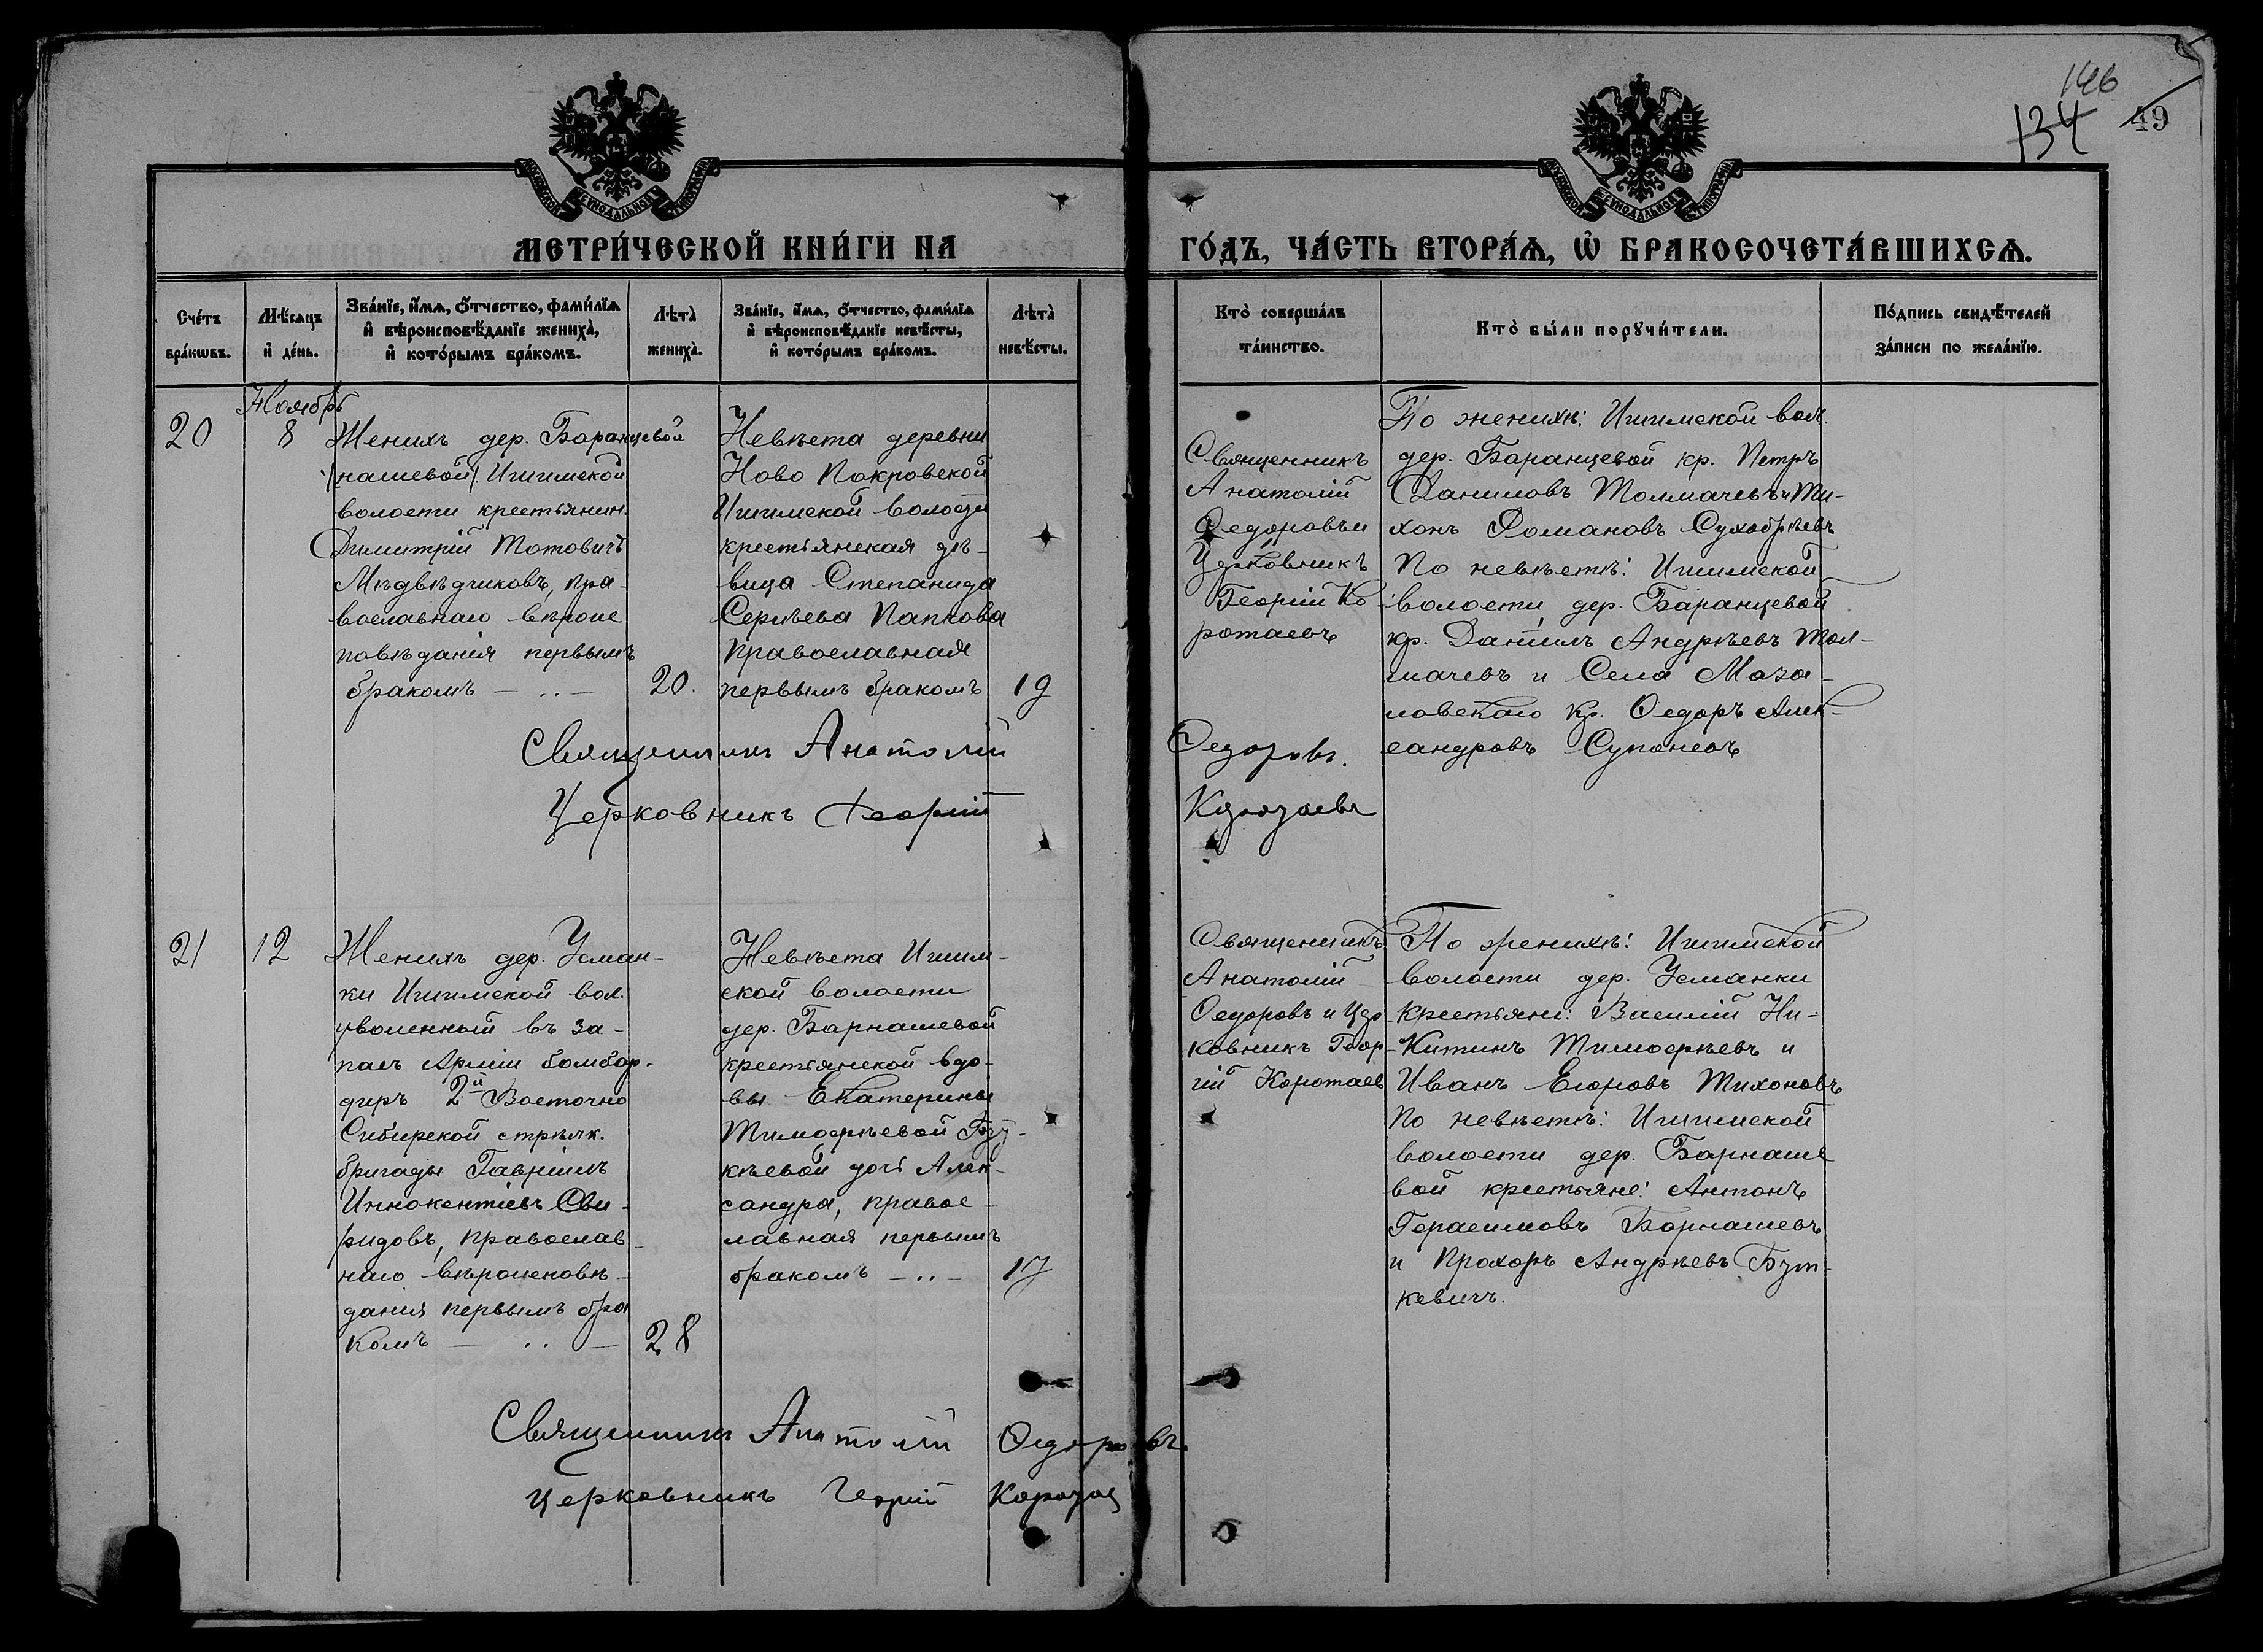 146
134 49
МОСКОВСКОЙ СѴНОДАЛЬНОЙ ТИПОГРАФІИ
МОСКОВСКОЙ СѴНОДАЛЬНОЙ ТИПОГРАФІИ
МЕТРИ́ЧЕСКОЙ КНИ́ГИ НА
ГО́ДЪ, ЧА́СТЬ ВТОРА́Ѧ, Ѽ БРАКОСОЧЕТА́ВШИХСѦ.
Сче́тъ
бра́кѡвъ.
Мѣ́сяцъ
и҆ де́нь.
Зва́нїе, и҆́мѧ, ѻ҆́тчество, фами́лїѧ
и҆ вѣроисповѣ́данїе жениха̀,
и҆ кото́рымъ бра́комъ.
Лѣта̀
жениха̀.
Зва́нїе, и҆́мѧ, ѻ҆́тчество, фами́лїѧ
и҆ вѣроисповѣ́данїе невѣ́сты,
и҆ кото́рымъ бра́комъ.
Лѣта̀
невѣ́сты.
Кто̀ соверша́лъ
та́инство.
Кто̀ бы́ли порꙋчи́тели.
По́дпись свидѣ́телей
за́писи по жела́нїю.
Ноябрь
20
8
Женихъ дер. Баранцевой
/нашевой/. Ишимской
волости крестьянин.
Димитрій Тотовичъ
Мѣдвѣдчиковъ, пра-
вославнаго вѣроис
повѣданія первымъ
бракомъ — .. —
20.
Невѣста деревни
Ново Покровской
Ишимской волости
крестьянская дѣ-
вица Степанида
Сергѣева Папкова
православная
первымъ бракомъ
19
Священникъ
Анатолій
Ѳедоровъ и
Церковникъ
Георгій Ко
ротаевъ
По женихѣ: Ишимской вол.
дер. Баранцевой кр. Петръ
Даниловъ Толмачевъ и Ти-
хонъ Романовъ Сухобрѣевъ
По невѣстѣ: Ишимской
волости, дер. Баранцевой
кр. Даніилъ Андрѣевъ Тол-
мачевъ и Села Маза-
ловскаго кр. Ѳедоръ Алек-
сандровъ Супоневъ
Священникъ Анатолій Ѳедоровъ.
Церковникъ Георгій Коротаевъ
21
12
Женихъ дер. Усман-
ки Ишимской вол.
уволенный въ за-
пасъ Арміи бомбар-
диръ 2й Восточно
Сибирской стрѣлк.
бригады Гавріилъ
Иннокентіевъ Сви-
ридовъ, православ-
наго вѣроисповѣ-
данія первымъ бра
комъ — .. —
28
Невѣста Ишим-
ской волости
дер. Барнашевой
крестьянской вдо-
вы Екатерины
Тимофѣевой Бу-
кѣевой дочь Алек-
сандра, правос-
лавная первымъ
бракомъ — .. —
17
Священникъ
Анатолій
Ѳедоровъ и Цер
ковникъ Геор-
гій Коротаев
По женихѣ: Ишимской
волости дер. Усманки
крестьяне: Василій Ни-
китинъ Тимофѣевъ и
Иванъ Егоровъ Тихоновъ
По невѣстѣ: Ишимской
волости дер. Барнаше
вой крестьяне: Антонъ
Герасимовъ Барнашевъ
и Прохоръ Андрѣевъ Бут-
кевичъ.
Священникъ Анатолій Ѳедоровъ.
Церковникъ Георгій Коротае